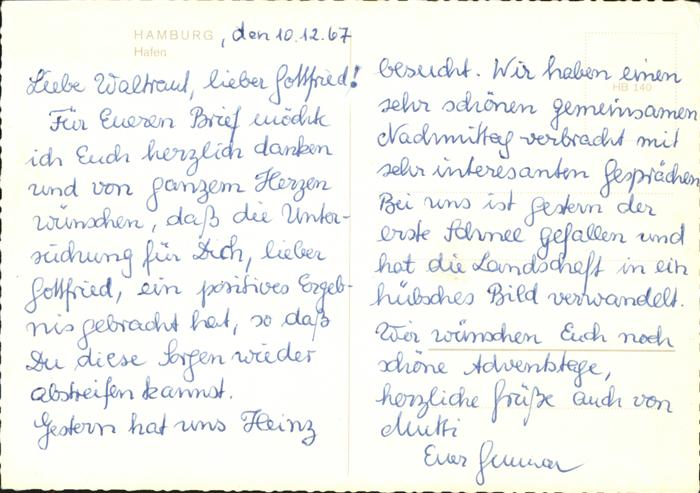 HAMBURG, den 10.12.67
Hafen
Liebe Waltraut, lieber Gottfried!
Für Eueren Brief möchte
ich Euch herzlich danken
und von ganzem Herzen
wünschen, daß die Unter-
suchung für Dich, lieber
Gottfried, ein positives Ergeb-
nis gebracht hat, so daß
Du diese Sorgen wieder
abstreifen kannst.
Gestern hat uns Heinz
besucht. Wir haben einen
HB 140
sehr schönen gemeinsamen
Nachmittag verbracht mit
sehr interesanten Gesprächen
Bei uns ist gestern der
erste Schnee gefallen und
hat die Landschaft in ein
hübsches Bild verwandelt.
Wir wünschen Euch noch
schöne Adventstage,
herzliche Grüße auch von
Mutti
Euer